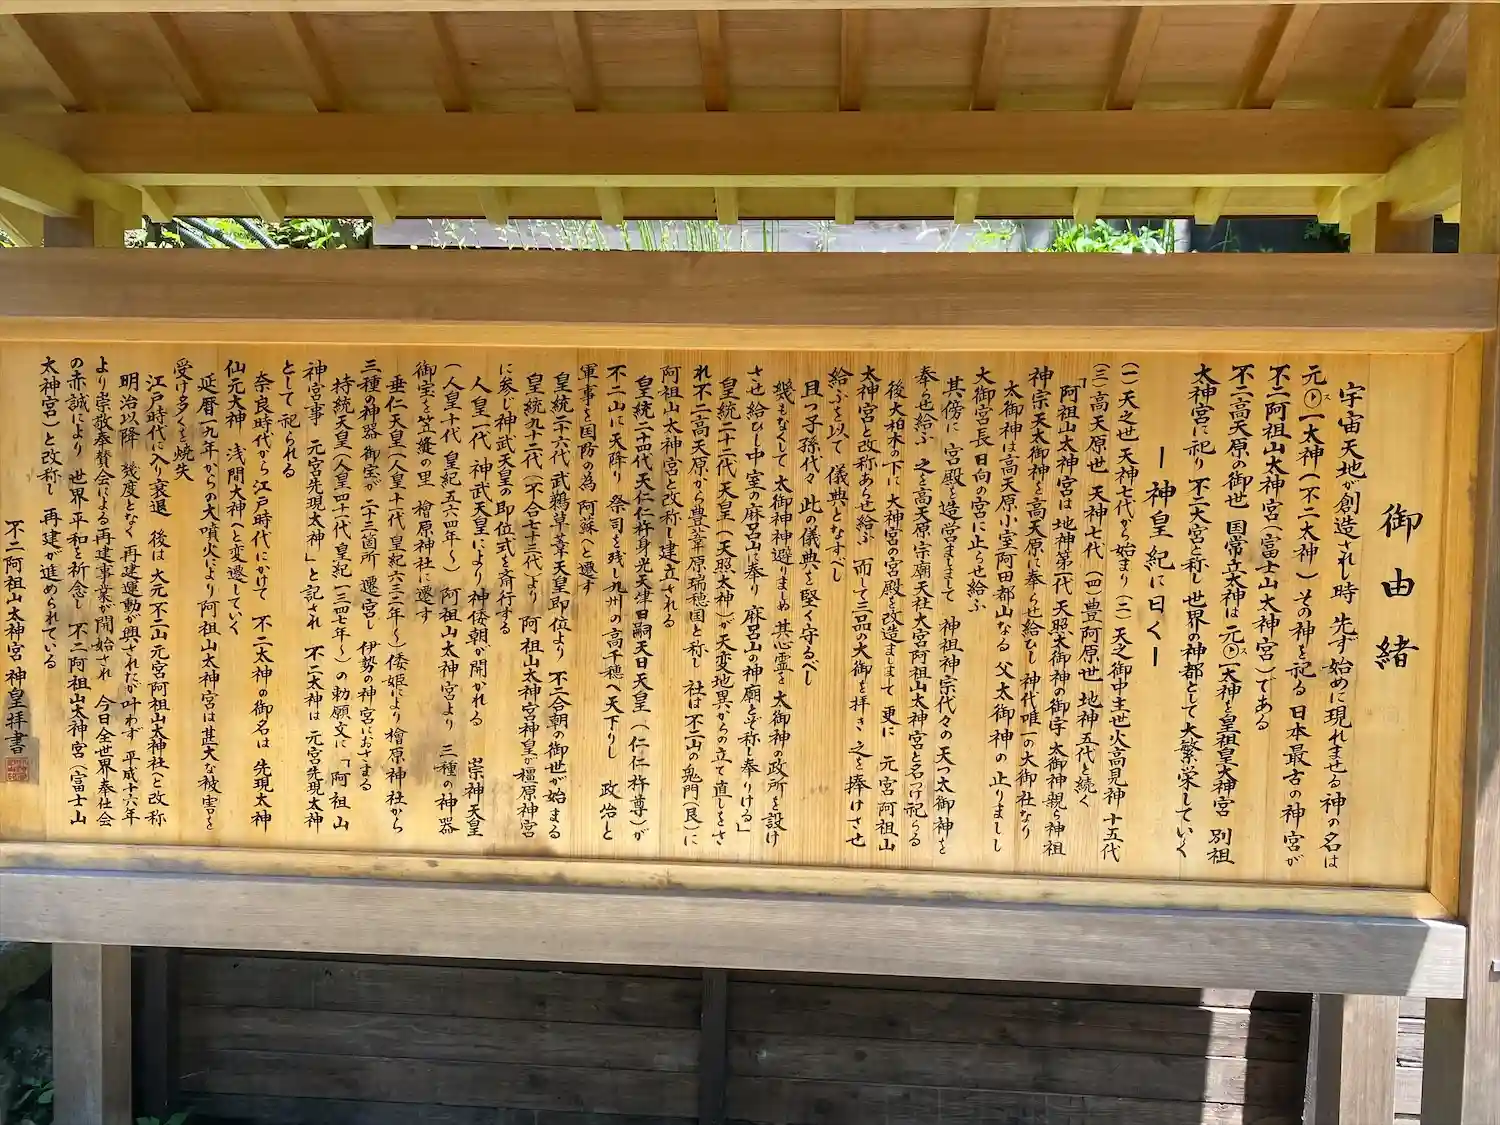 御由緒
宇宙天地が創造されし時 先ず始めに現れませる神の名は
元ス一太神(不二太神)その神を祀る日本最古の神宮が
不二阿祖山太神宮(富士山太神宮)である
不二高天原の御世 国常立太神は元ス一太神を皇祖皇太神宮 別祖
太神宮に祀り 不二大宮と称し世界の神都として大繁栄していく
ー神皇紀に曰くー
(一)天之世 天神七代から始まり(二)天之御中主世 火高見神 十五代
(三)高天原世 天神七代 (四)豊阿原世 地神五代と続く
「阿祖山太神宮は地神第一代 天照太御神の御宇 太御神親ら神祖
神宗天太御神を高天原に奉らせ給ひし神代唯一の大御社なり
太御神は高天原小室阿田都山なる 父太御神の止りましし
大御宮長日向の宮に止らせ給ふ
其傍に 宮殿を造営ましまして 神祖神宗代々の天つ太御神を
奉らせ給ふ 之を高天原宗廟天社大宮阿世山太神宮と名つけ祀らる
後大柏木の下に 大神宮の宮殿を改造ましまして更に 元宮阿祖山
太神宮と改称あらせ給ふ 而して三品の大御を拝き 之を捧けさせ
給ふを以て 儀典となすべし
且つ子孫代々 此の儀典を堅く守るべし
幾もなくして 太御神神避りましぬ 其心霊を 太御神の政所を設け
させ給ひし中室の麻呂山に奉り 麻呂山の神廟と予称し奉りける」
皇統二十二代 天皇(天照太神)が天変地異からの立て直しをさ
れ不二高天原から豊葦原瑞穂国と称し 社は不二山の鬼門(艮)に
阿祖山太神宮と改称し建立される
皇統二十四代天仁仁杵身光天津日嗣天日天皇(仁仁杵尊)が
不二山に天降り 祭司を残し九州の高千穂へ天下りし 政治と
軍事を国防の為 阿蘇へと遷す
皇統二十六代 武鵜草葺不天皇即位より 不二合朝の御世が始まる
皇統九十二代(不合七十三代)より 阿祖山太神宮神皇が橿原神宮
に参じ神武天皇の即位式を斎行する
人皇一代 神武天皇により神倭朝が開かれる 崇神天皇
(人皇十代 皇紀五六四年~)阿祖山太神宮より 三種の神器
御宝を笠縫の里 檜原神社に遷す
垂仁天皇(人皇十一代 皇紀六三二年~)倭姫により檜原神社から
三種の神器 御宝が 二十三箇所 遷宮し 伊勢の神宮におさまる
持統天皇(人皇四十一代 皇紀一三四七年~)の勅願文に「阿祖山
神宮事 元宮先現太神」と記され 不二太神は 元宮先現太神
として祀られる
奈良時代から江戸時代にかけて 不二太神の御名は 先現太神
仙元大神 浅間大神へと変遷していく
延暦一九年からの大噴火により阿祖山太神宮は甚大な被害を
受け多くを焼失
江戸時代に入り衰退 後は大元不二山元宮阿祖山太神社へと改称
明治以降 幾度となく再建運動が興されたが叶わず 平成十六年
より崇敬奉賛会による再建事業が開始され 今日全世界奉仕会
の赤誠により 世界平和を祈念し 不二阿祖山太神宮(富士山
太神宮)と改称し 再建が進められている
不二阿祖山太神宮 神皇拝書